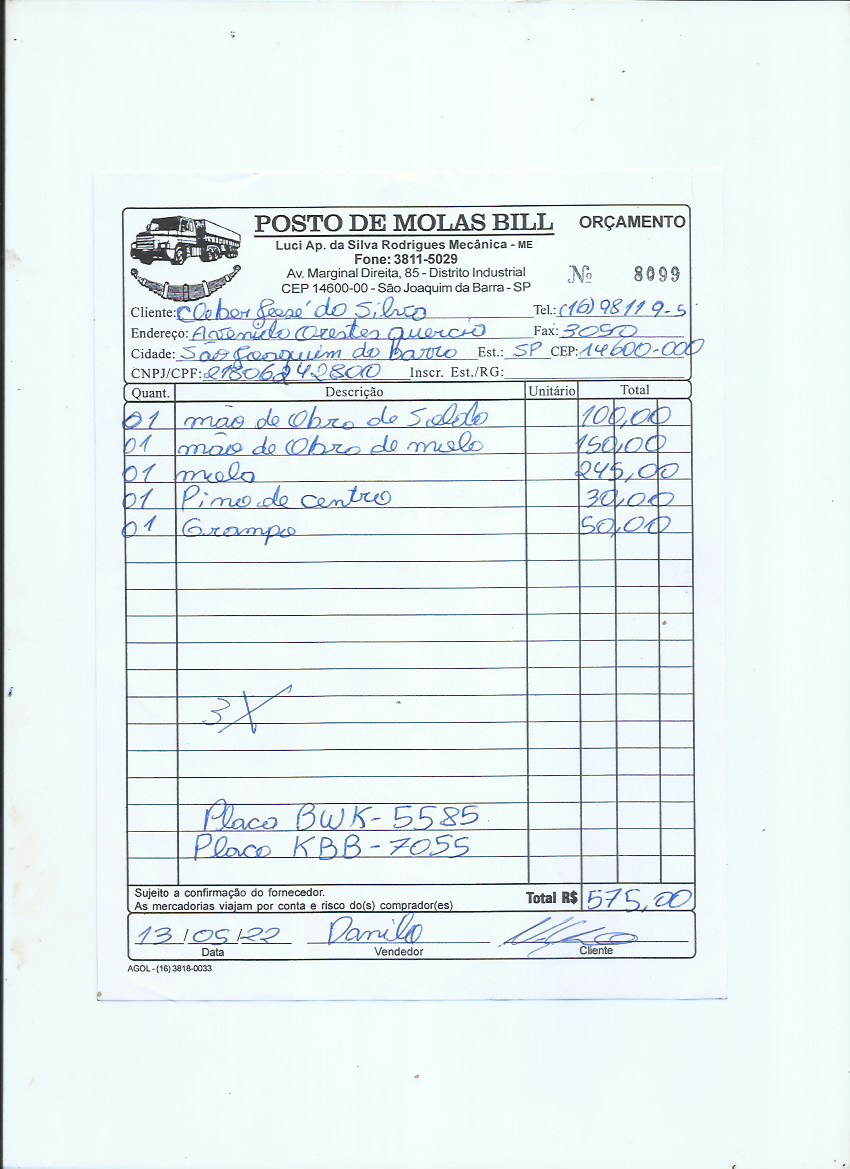 POSTO DE MOLAS BILL ORÇAMENTO
Luci Ap. da Silva Rodrigues Mecânica - ME
Fone: 3811-5029
Av. Marginal Direita, 85 - Distrito Industrial Nº 8099
CEP 14600-00 - São Joaquim da Barra - SP
Cliente: Cleber José da Silva Tel.: (16) 98119-5
Endereço: Avenida Orestes Quercia Fax: 3050
Cidade: São Joaquim da Barra Est.: SP CEP: 14600-000
CNPJ/CPF: 21806242800 Inscr. Est./RG:
Quant. Descrição Unitário Total
01 mão de Obra de Solda 100,00
01 mão de Obra de mola 150,00
01 mola 245,00
01 Pino de centro 30,00
01 Grampo 50,00
3X
Placa BWK-5585
Placa KBB-7055
Sujeito a confirmação do fornecedor.
As mercadorias viajam por conta e risco do(s) comprador(es) Total R$ 575,00
13/05/22 Danilo
Data Vendedor Cliente
AGOL - (16) 3818-0033